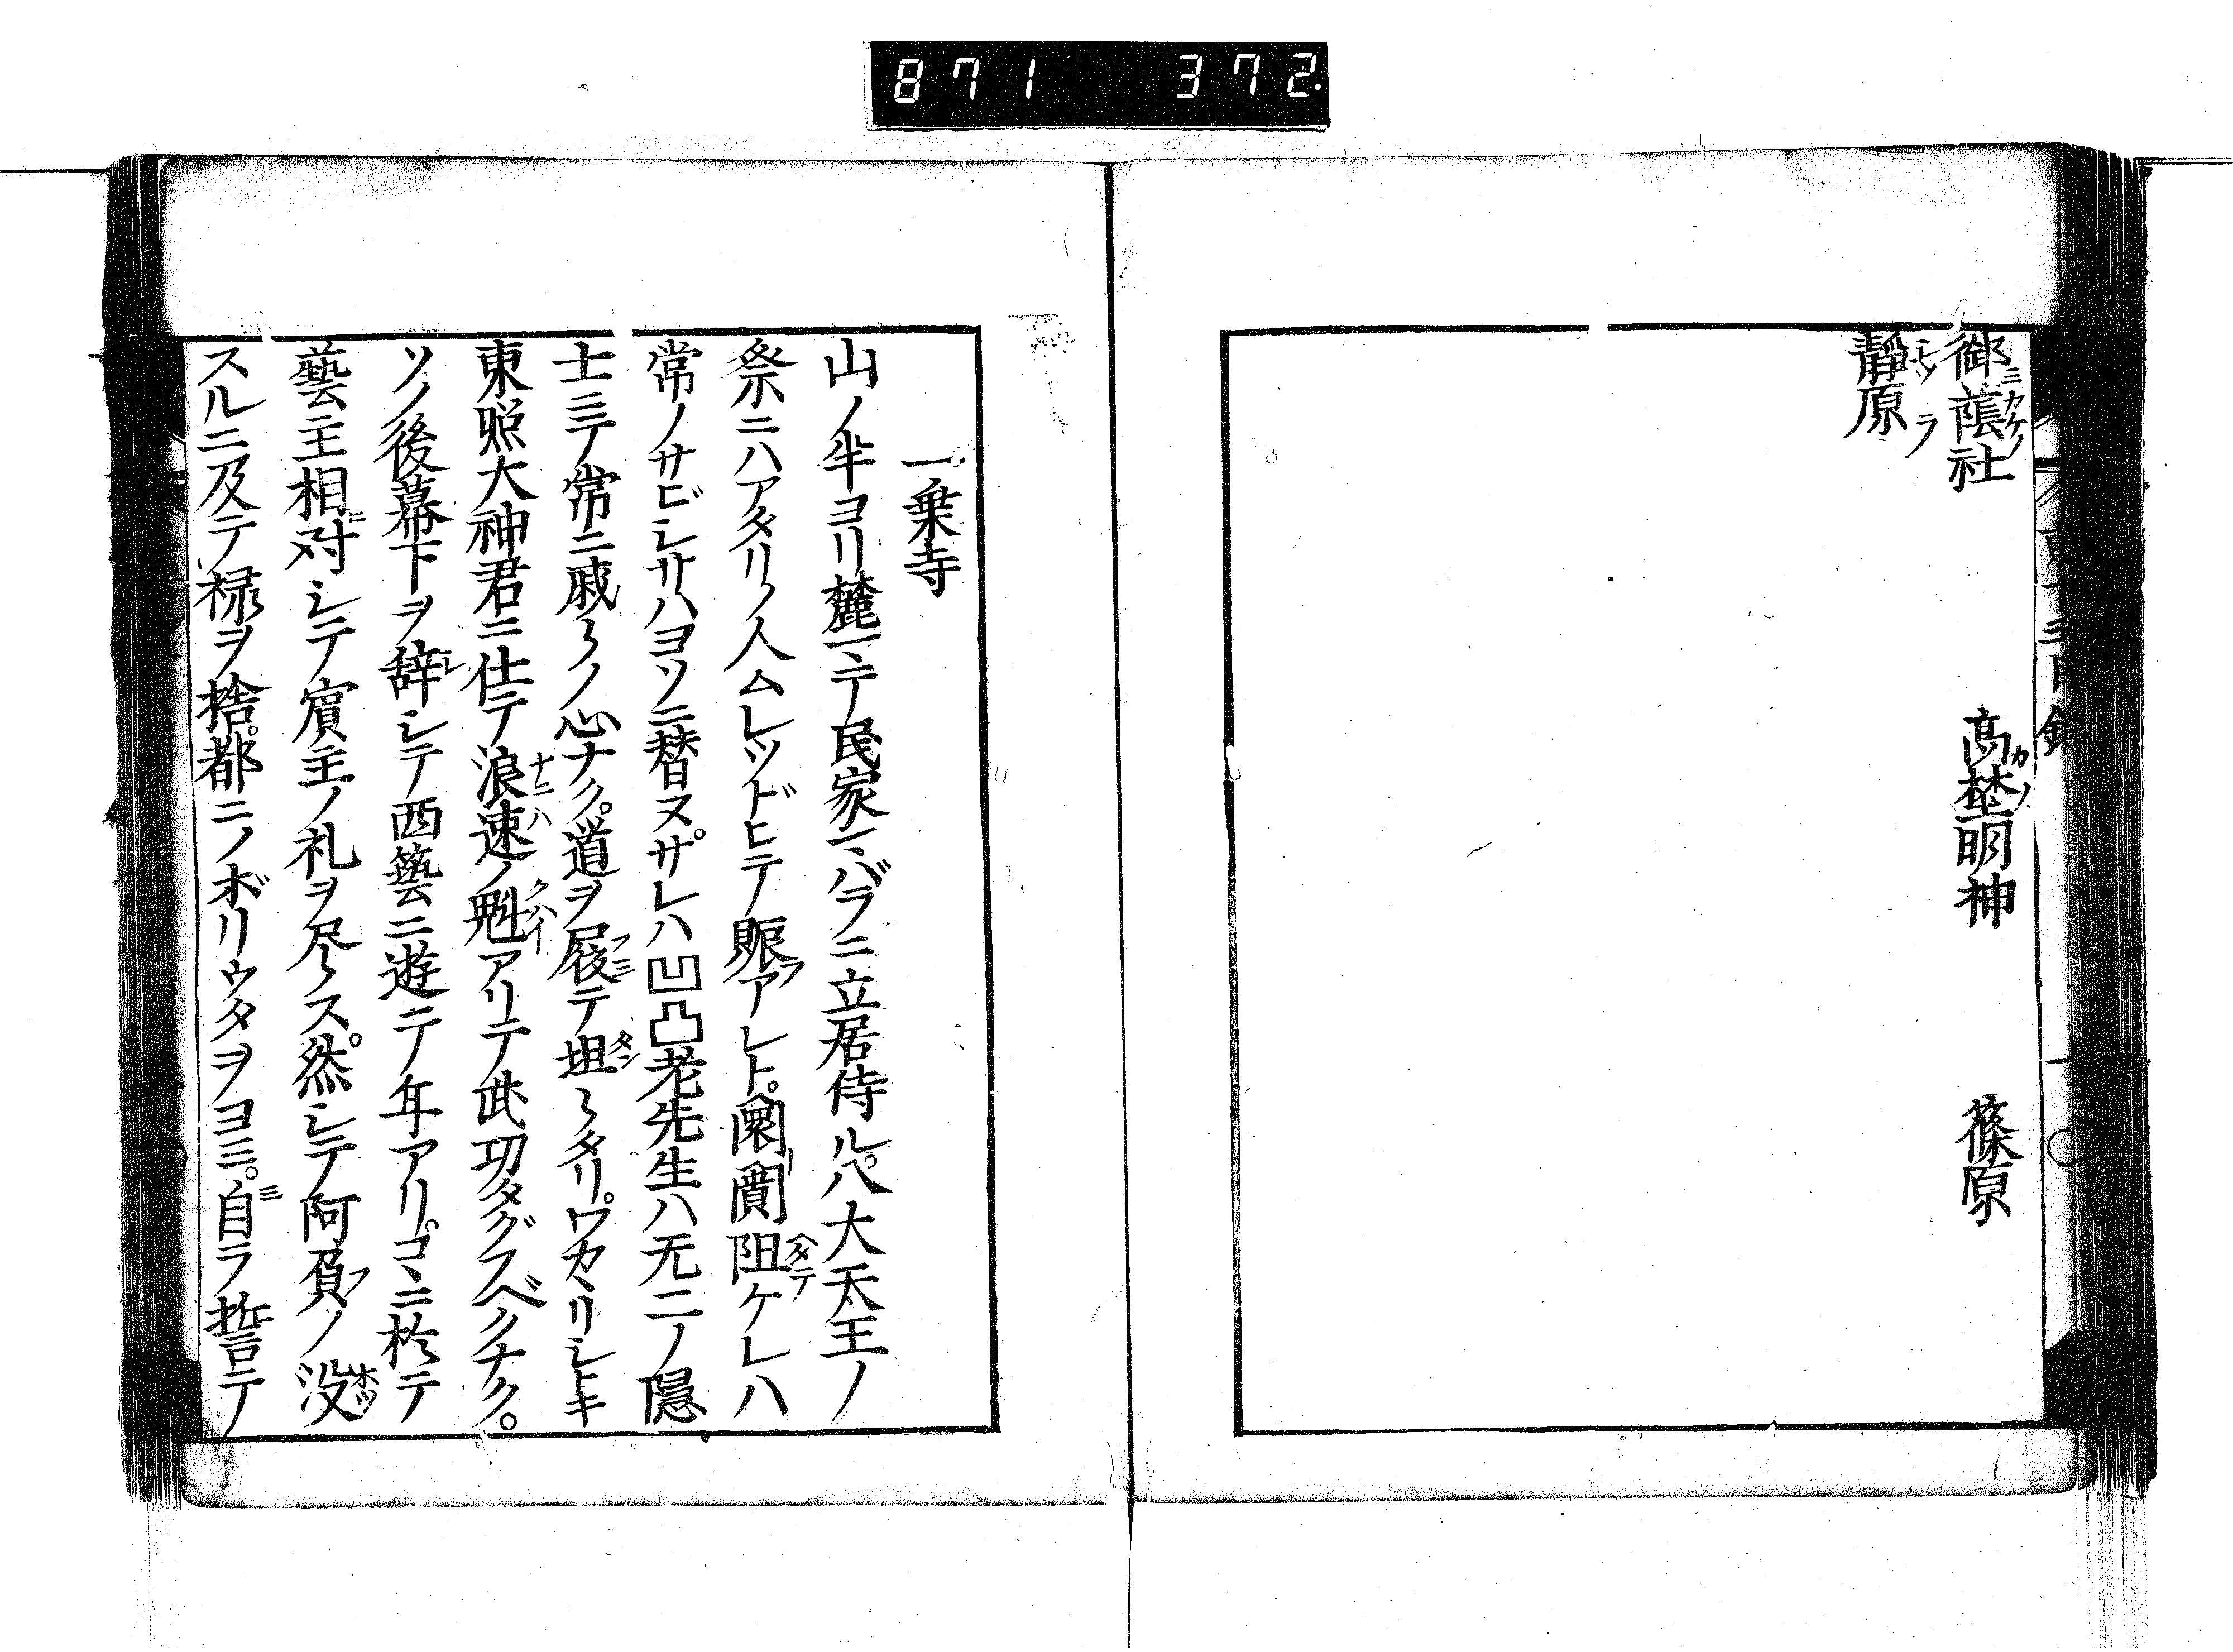 871 372.
御蔭社 高埜明神 篠原
靜原
一乗寺
山ノ半ヨリ麓ニテ民家マバラニ立居侍ル。八大天王ノ
祭ニハアタリノ人ムレツドヒテ賑アレト。闃闃阻ケレハ
常ノサビシサハヨソニ替ヌ。サレハ凹凸老先生ハ无二ノ隠
士ニテ常ニ戚〻ノ心ナク。道ヲ履テ坦〻タリ。ワカヽリシトキ
東照大神君ニ仕テ浪速ノ魁アリテ武功タグフベクナク。
ソノ後幕下ヲ辞シテ西藝ニ遊テ年アリ。コヽニ於テ
藝主相対シテ賓主ノ礼ヲ尽ス。然シテ阿負ノ没
スルニ及テ禄ヲ捨。都ニノボリウタヲヨミ。自ラ誓テ